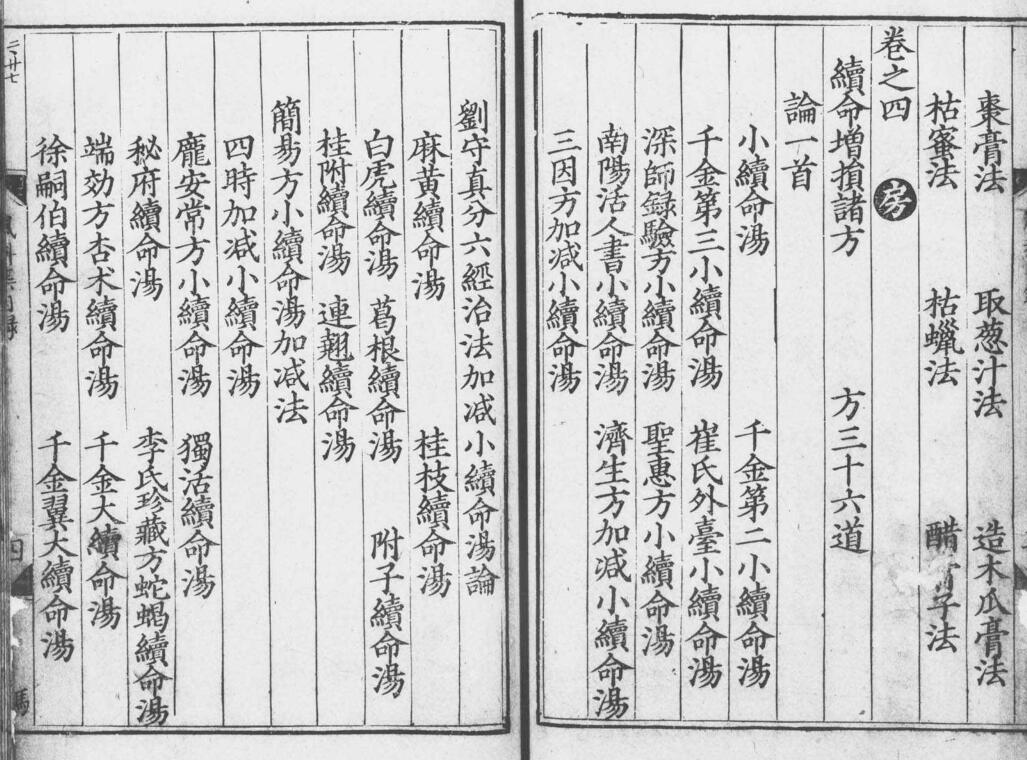 棗膏法 取葱汁法 造木瓜膏法
枯蜜法 枯蠟法 醋 子法
卷之四 房
續命增損諸方 方三十六道
論一首
小續命湯 千金第二小續命湯
千金第三小續命湯 崔氏外臺小續命湯
深師録驗方小續命湯 聖惠方小續命湯
南陽活人書小續命湯 濟生方加减小續命湯
三因方加减小續命湯
劉守真分六經治法加减小續命湯論
麻黄續命湯 桂枝續命湯
白虎續命湯 葛根續命湯 附子續命湯
桂附續命湯 連翹續命湯
簡易方小續命湯加减法
四時加减小續命湯
龐安常方小續命湯 獨活續命湯
秘府續命湯 李氏珍藏方蛇蝎續命湯
端効方杏术續命湯 千金大續命湯
徐嗣伯續命湯 千金翼大續命湯
四
二、廿七